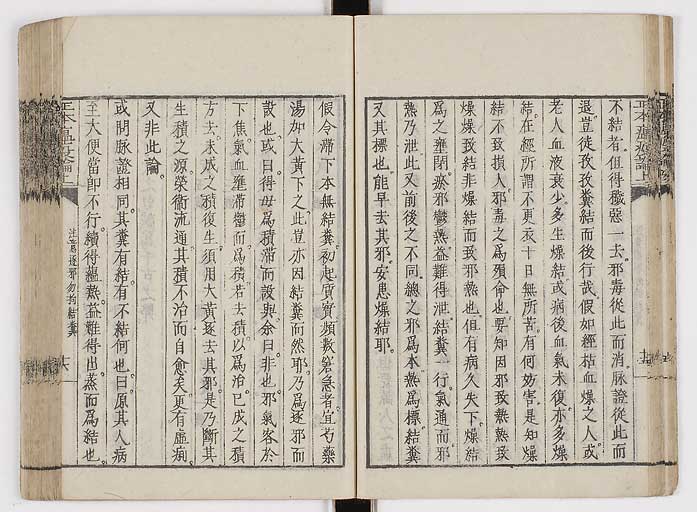 不結者但得穢惡一去邪毒從此而消脉證從此而
退豈徒孜孜糞結而後行哉假如經枯血燥之人或
老人血液衰少多生燥結或病後血氣未復亦多燥
結在經所謂不更衣十日無所苦有何妨害是知燥
結不致損人邪毒之爲殞命也要知因邪熱致
燥燥致結非燥結而致邪熱也但有病久失下燥結
爲之壅閉瘀邪鬱熱益難得泄結糞一行氣通而邪
熱乃泄此又前後之不同總之邪爲本熱爲標結糞
又其標也能早去其邪安患燥結耶
假令滯下本無結糞初起質實頻數窘急者宜芍藥
湯加大黃下之此豈亦因結糞而然耶乃爲逐邪而
設也或曰得毋爲積滯而設與余曰非也邪氣客於
下焦氣血壅滯鬱而爲積若去積以爲治已成之積
方去未成之積復生須用大黃逐去其邪是乃斷其
生積之源榮衛流通其積不治而自愈矣更有虛痢
又非此論
或問脉證相同其糞有結有不結何也曰原其人病
至大便當即不行續得蘊熱益難得出蒸而爲結也
注意逐邪勿拘結糞